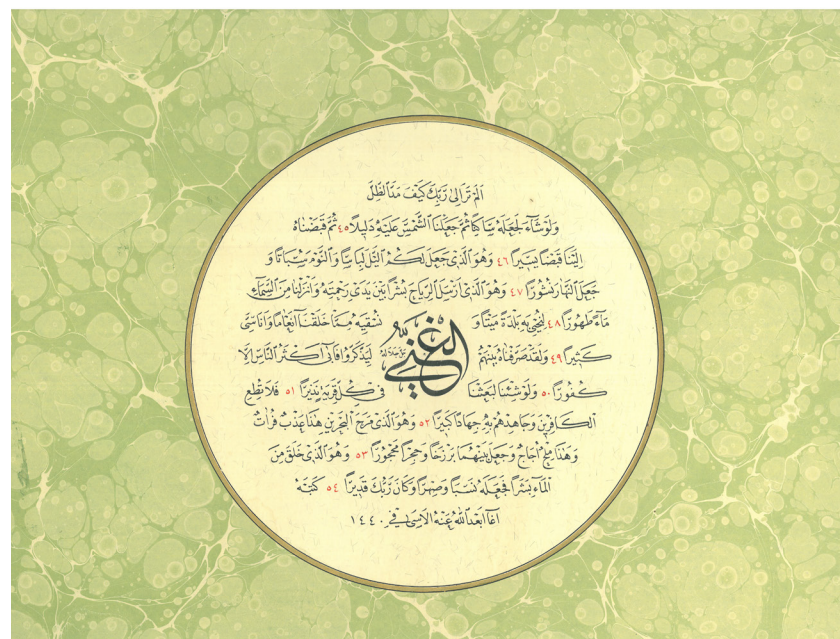 اَلَمْ تَرَ اِلٰى رَبِّكَ كَيْفَ مَدَّ الظِّلَّ
وَلَوْ شَاءَ لَجَعَلَهُ سَاكِنًا ثُمَّ جَعَلْنَا الشَّمْسَ عَلَيْهِ دَلِيلًا ٤٥ ثُمَّ قَبَضْنَاهُ
اِلَيْنَا قَبْضًا يَسِيرًا ٤٦ وَهُوَ الَّذِي جَعَلَ لَكُمُ الَّيْلَ لِبَاسًا وَالنَّوْمَ سُبَاتًا وَ
جَعَلَ النَّهَارَ نُشُورًا ٤٧ وَهُوَ الَّذِي اَرْسَلَ الرِّيَاحَ بُشْرًا بَيْنَ يَدَيْ رَحْمَتِهِ وَاَنْزَلْنَا مِنَ السَّمَاءِ
مَاءً طَهُورًا ٤٨ لِنُحْيِيَ بِهِ بَلْدَةً مَيْتًا وَ نُسْقِيَهُ مِمَّا خَلَقْنَا اَنْعَامًا وَاَنَاسِيَّ
كَثِيرًا ٤٩ وَلَقَدْ صَرَّفْنَاهُ بَيْنَهُمْ لِيَذَّكَّرُوا فَاَبٰى اَكْثَرُ النَّاسِ اِلَّا
الغني جل جلاله
كُفُورًا ٥٠ وَلَوْ شِئْنَا لَبَعَثْنَا فِي كُلِّ قَرْيَةٍ نَذِيرًا ٥١ فَلَا تُطِعِ
الْكَافِرِينَ وَجَاهِدْهُمْ بِهِ جِهَادًا كَبِيرًا ٥٢ وَهُوَ الَّذِي مَرَجَ الْبَحْرَيْنِ هٰذَا عَذْبٌ فُرَاتٌ
وَهٰذَا مِلْحٌ اُجَاجٌ وَجَعَلَ بَيْنَهُمَا بَرْزَخًا وَحِجْرًا مَحْجُورًا ٥٣ وَهُوَ الَّذِي خَلَقَ مِنَ
الْمَاءِ بَشَرًا فَجَعَلَهُ نَسَبًا وَصِهْرًا وَكَانَ رَبُّكَ قَدِيرًا ٥٤ كَتَبَهُ
في ١٤٤٠